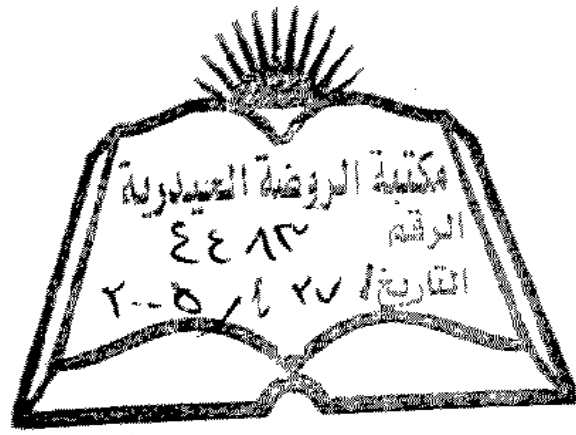 مكتبة الروضة الحيدرية
الرقم ٤٤٨٣
التاريخ / ٢٧ / ٤ / ٢٠٠٥